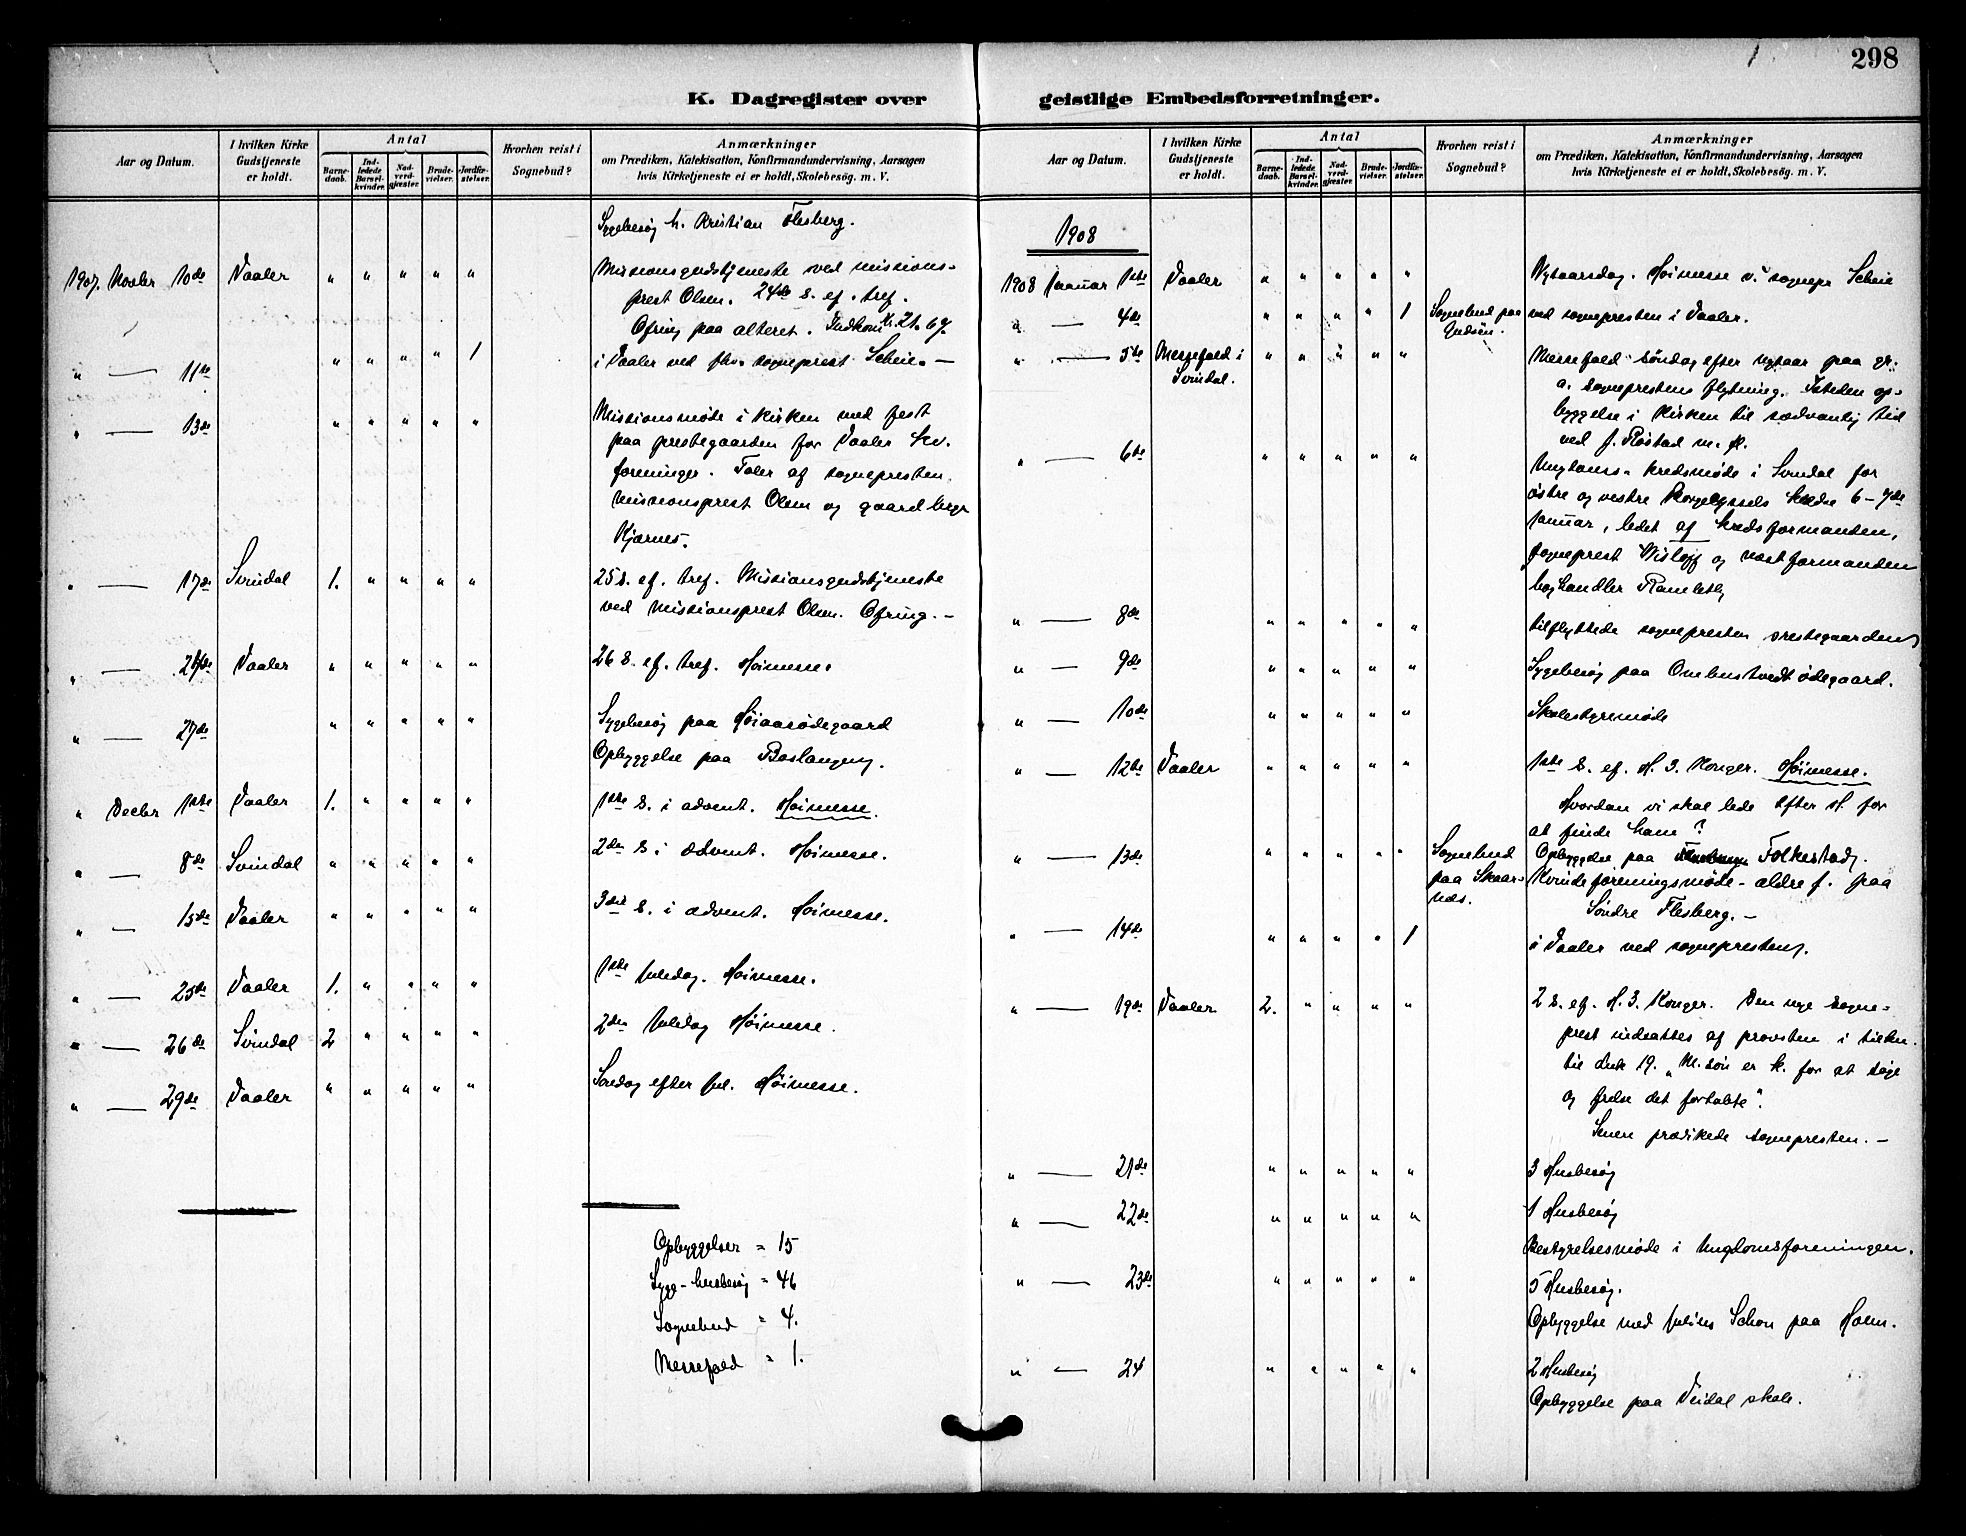 298
K. Dagregister over geistlige Embedsforretninger.
Aar og Datum.
I hvilken Kirke Gudstjeneste er holdt.
Antal
Barne-daab.
Ind-ledede Barsel-kvinder.
Nad-verd-gjester.
Brude-vielser.
Jordfæ-stelser.
Hvorhen reist i Sognebud?
Anmærkninger
om Prædiken, Katekisation, Konfirmandundervisning, Aarsagen
hvis Kirketjeneste ei er holdt, Skolebesøg. m. V.
Sygebesøg h. Kristian Flesberg.
1907 Novbr 10de Vaaler " " " " " Missionsgudstjeneste ved missions-
prest Olsen. 24de s. ef. tref.
Ofring paa alteret. Indkom Kr. 21.69.
" — 11te " " " " 1 i Vaaler ved fhv. sogneprest Scheie. —
" — 13de " " " " " Missionsmøde i kirken med fest
paa prestegaarden for Vaaler kv.
foreninger. Taler af sognepresten,
missionsprest Olsen og gaardbegr
Kjærnes.
" — 17de Svindal 1. " " " " 25 s. ef. tref. Missionsgudstjeneste
ved missionsprest Olsen. Ofring. —
" — 24de Vaaler " " " " " 26 s. ef. tref. Høimesse.
" — 27de " " " " " Sygebesøg paa Høiaasødegaard
Opbyggelse paa Baslangen.
" Decbr 1ste Vaaler 1. " " " " 1ste s. i advent. Høimesse.
" — 8de Svindal " " " " " 2den s i advent. Høimesse.
" — 15de Vaaler " " " " " 3die s. i advent. Høimesse.
" — 25de Vaaler 1. " " " " 1ste juledag. Høimesse.
" — 26de Svindal 2 " " " " 2den juledag Høimesse.
" — 29de Vaaler " " " " " Søndag efter jul. Høimesse.
Opbyggelser = 15
Syge-husbesøg = 46
Sognebud = 4.
Messefald = 1.
Aar og Datum.
I hvilken Kirke Gudstjeneste er holdt.
Antal
Barne-daab.
Ind-ledede Barsel-kvinder.
Nad-verd-gjester.
Brude-vielser.
Jordfæ-stelser.
Hvorhen reist i Sognebud?
Anmærkninger
om Prædiken, Katekisation, Konfirmandundervisning, Aarsagen
hvis Kirketjeneste ei er holdt, Skolebesøg. m. V.
1908
1908 Januar 1ste Vaaler " " " " " Nytaarsdag. Høimesse v. sognepr Scheie
" — 4de " " " " 1 Sognebud paa ved sognepresten i Vaaler.
" — 5te Messefald i Svindal. " " " " " Messefald søndag efter nytaar paa gr.
a. sogneprestens flytning. Isteden op-
byggelse i kirken til sædvanlig tid
ved J. Røstad m. fl.
" — 6te " " " " " Ungdoms-kredsmøde i Svindal for
østre og vestre Borgesyssels kredse 6-7de
Januar, ledet af kredsformanden,
sogneprest Wisløff og næstformanden
boghandler
" — 8de " " " " " tilflyttede sognepresten prestegaarden
" — 9de " " " " " Sygebesøg paa Ombustvedt ødegaard.
" — 10de " " " " " Skolestyremøde
" — 12te Vaaler " " " " " 1ste s. ef. H. 3. Konger. Høimesse.
Hvordan vi skal lede efter H. for
at finde ham?
" — 13de " " " " " Sognebud paa Skaar-næs. Opbyggelse paa Folkestad.
Kvindeforeningsmøde - ældre f. paa
Søndre Flesberg. —
" — 14de " " " " 1 i Vaaler ved sognepresten.
" — 19de Vaaler 2. " " " " 2 s. ef. H. 3. Konger. Den nye sogne-
prest indsattes af provsten i tilkn.
til Luk 19. "M. søn er k. for at søge
og frelse det fortabte".
Senere prædikede sognepresten. —
" — 21de " " " " " 3 Husbesøg
" — 22de " " " " " 1 Husbesøg
Bestyrelsesmøde i Ungdomsforeningen.
" — 23de " " " " " 5 Husbesøg.
Opbyggelse med Julius Schou paa Holm.
" — 24 " " " " " 2 Husbesøg
Opbyggelse paa Veidal skole.